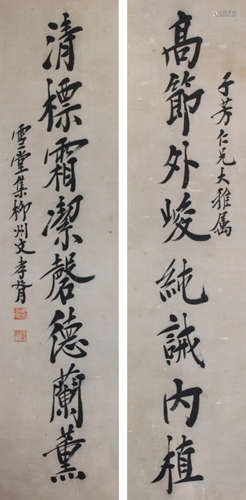 子芳仁兄大雅属
高節外峻純誠内植
清標霜潔磬德蘭薰
雪堂集柳州文孝胥